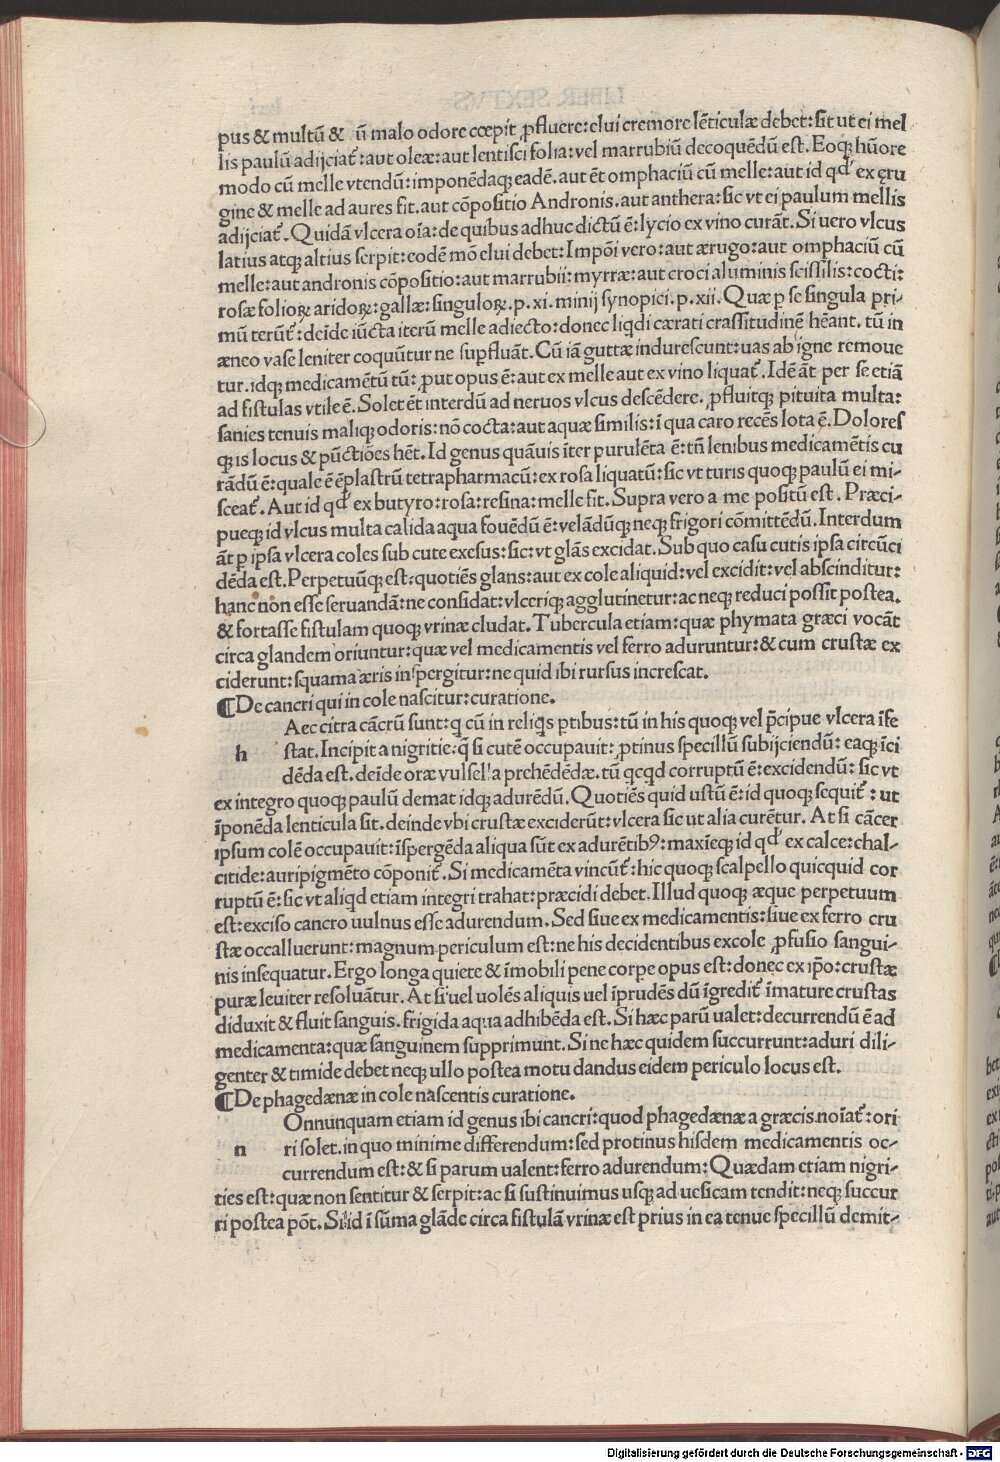 pus & multū & ū malo odore cœpit ꝓfluere: elui cremore lēticulæ debet: sit ut ei mel
lis paulū adijciatʳ: aut oleæ: aut lentisci folia: vel marrubiū decoquēdū est. Eoqꝫ hūore
modo cū melle vtendū: imponēdaqꝫ eadē. aut ēt omphaciū cū melle: aut id qd́ ex ęru
gine & melle ad aures fit. aut cōpositio Andronis. aut anthera: sic vt ei paulum mellis
adijciatʳ. Quidā vlcera oīa: de quibus adhuc dictū ē: lycio ex vino curāt. Si uero vlcus
latius atqꝫ altius serpit: eodē mō elui debet: Impōi vero: aut ærugo: aut omphaciū cū
melle: aut andronis cōpositio: aut marrubii: myrræ: aut croci aluminis scissilis: cocti:
rosæ folioꝝ aridoꝝ: gallæ: singuloꝝ. p. xi. minij synopici. p. xii. Quæ ꝑ se singula pri-
mū terūtʳ: deīde iūcta iterū melle adiecto: donec liqdi cærati crassitudinē hēant. tū in
æneo vase leniter coquūtur ne suꝑfluāt. Cū iā guttæ indurescunt: uas ab igne remoue
tur. idqꝫ medicamētū tū: ꝓut opus ē: aut ex melle aut ex vino liquatʳ. Idē āt per se etiā
ad fistulas vtile ē. Solet ēt interdū ad neruos vlcus descēdere. ꝓfluitqꝫ pituita multa:
sanies tenuis maliqꝫ odoris: nō cocta: aut aquæ similis: ī qua caro recēs lota ē. Dolores
qꝫ is locus & pūctiōes hēt. Id genus quāuis īter purulēta ē: tn̄ lenibus medicamētis cu
rādū ē: quale ē ēplastrū tetrapharmacū: ex rosa liquatū: sic vt turis quoqꝫ paulū ei mi-
sceatʳ. Aut id qd́ ex butyro: rosa: resina: melle fit. Supra vero a me positū est. Præci-
pueqꝫ id vlcus multa calida aqua fouēdū ē: velādūqꝫ neqꝫ frigori cōmittēdū. Interdum
āt ꝑ ipsa vlcera coles sub cute exesus: sic: vt glās excidat. Sub quo casu cutis ipsa circūci
dēda est. Perpetuūqꝫ est: quotiēs glans: aut ex cole aliquid: vel excidit: vel abscinditur:
hanc non esse seruandā: ne considat: vlceriqꝫ agglutinetur: ac neqꝫ reduci possit postea.
& fortasse fistulam quoqꝫ vrinæ cludat. Tubercula etiam: quæ phymata græci vocāt
circa glandem oriuntur: quæ vel medicamentis vel ferro aduruntur: & cum crustæ ex
ciderunt: squama æris inspergitur: ne quid ibi rursus increscat.
¶ De cancri qui in cole nascitur: curatione.
Aec citra cācrū sunt: q cū in reliq̄s ptibus: tū in his quoqꝫ vel p̄cipue vlcera īfe
h stat. Incipit a nigritie: q̄ si cutē occupauit: ꝓtinus specillū subijciendū: eaqꝫ īci
dēda est. deīde oræ vulsella prehēdēdæ. tū qcqd corruptū ē: excidendū: sic vt
ex integro quoqꝫ paulū demat idqꝫ adurēdū. Quotiēs quid ustū ē: id quoqꝫ sequitʳ: ut
īponēda lenticula sit. deinde vbi crustæ exciderūt: vlcera sic ut alia curētur. At si cācer
ipsum colē occupauit: īspergēda aliqua sūt ex adurētibꝰ: maxīeqꝫ id qd́ ex calce: chal-
citide: auripigmēto cōponitʳ. Si medicamēta vincūtʳ: hic quoqꝫ scalpello quicquid cor
ruptū ē: sic vt aliqd etiam integri trahat: præcidi debet. Illud quoqꝫ æque perpetuum
est: exciso cancro uulnus esse adurendum. Sed siue ex medicamentis: siue ex ferro cru
stæ occalluerunt: magnum periculum est: ne his decidentibus ex cole ꝓfusio sangui-
nis insequatur. Ergo longa quiete & īmobili pene corpe opus est: donec ex ip̄o: crustæ
puræ leuiter resoluātur. At si uel uolēs aliquis uel īprudēs dū īgreditʳ īmature crustas
diduxit & fluit sanguis. frigida aqua adhibēda est. Si hæc parū ualet: decurrendū ē ad
medicamenta: quæ sanguinem supprimunt. Si ne hæc quidem succurrunt: aduri dili-
genter & timide debet neqꝫ ullo postea motu dandus eidem periculo locus est.
¶ De phagedænæ in cole nascentis curatione.
Onnunquam etiam id genus ibi cancri: quod phagedænæ a græcis noīatʳ: ori
n ri solet. in quo minime differendum: sed protinus hisdem medicamentis oc-
currendum est: & si parum ualent: ferro adurendum: Quædam etiam nigri-
ties est: quæ non sentitur & serpit: ac si sustinuimus usqꝫ ad uesicam tendit: neqꝫ succur
ri postea pōt. Si id ī sūma glāde circa fistulā vrinæ est prius in ea tenue specillū demit-
Digitalisierung gefördert durch die Deutsche Forschungsgemeinschaft - DFG